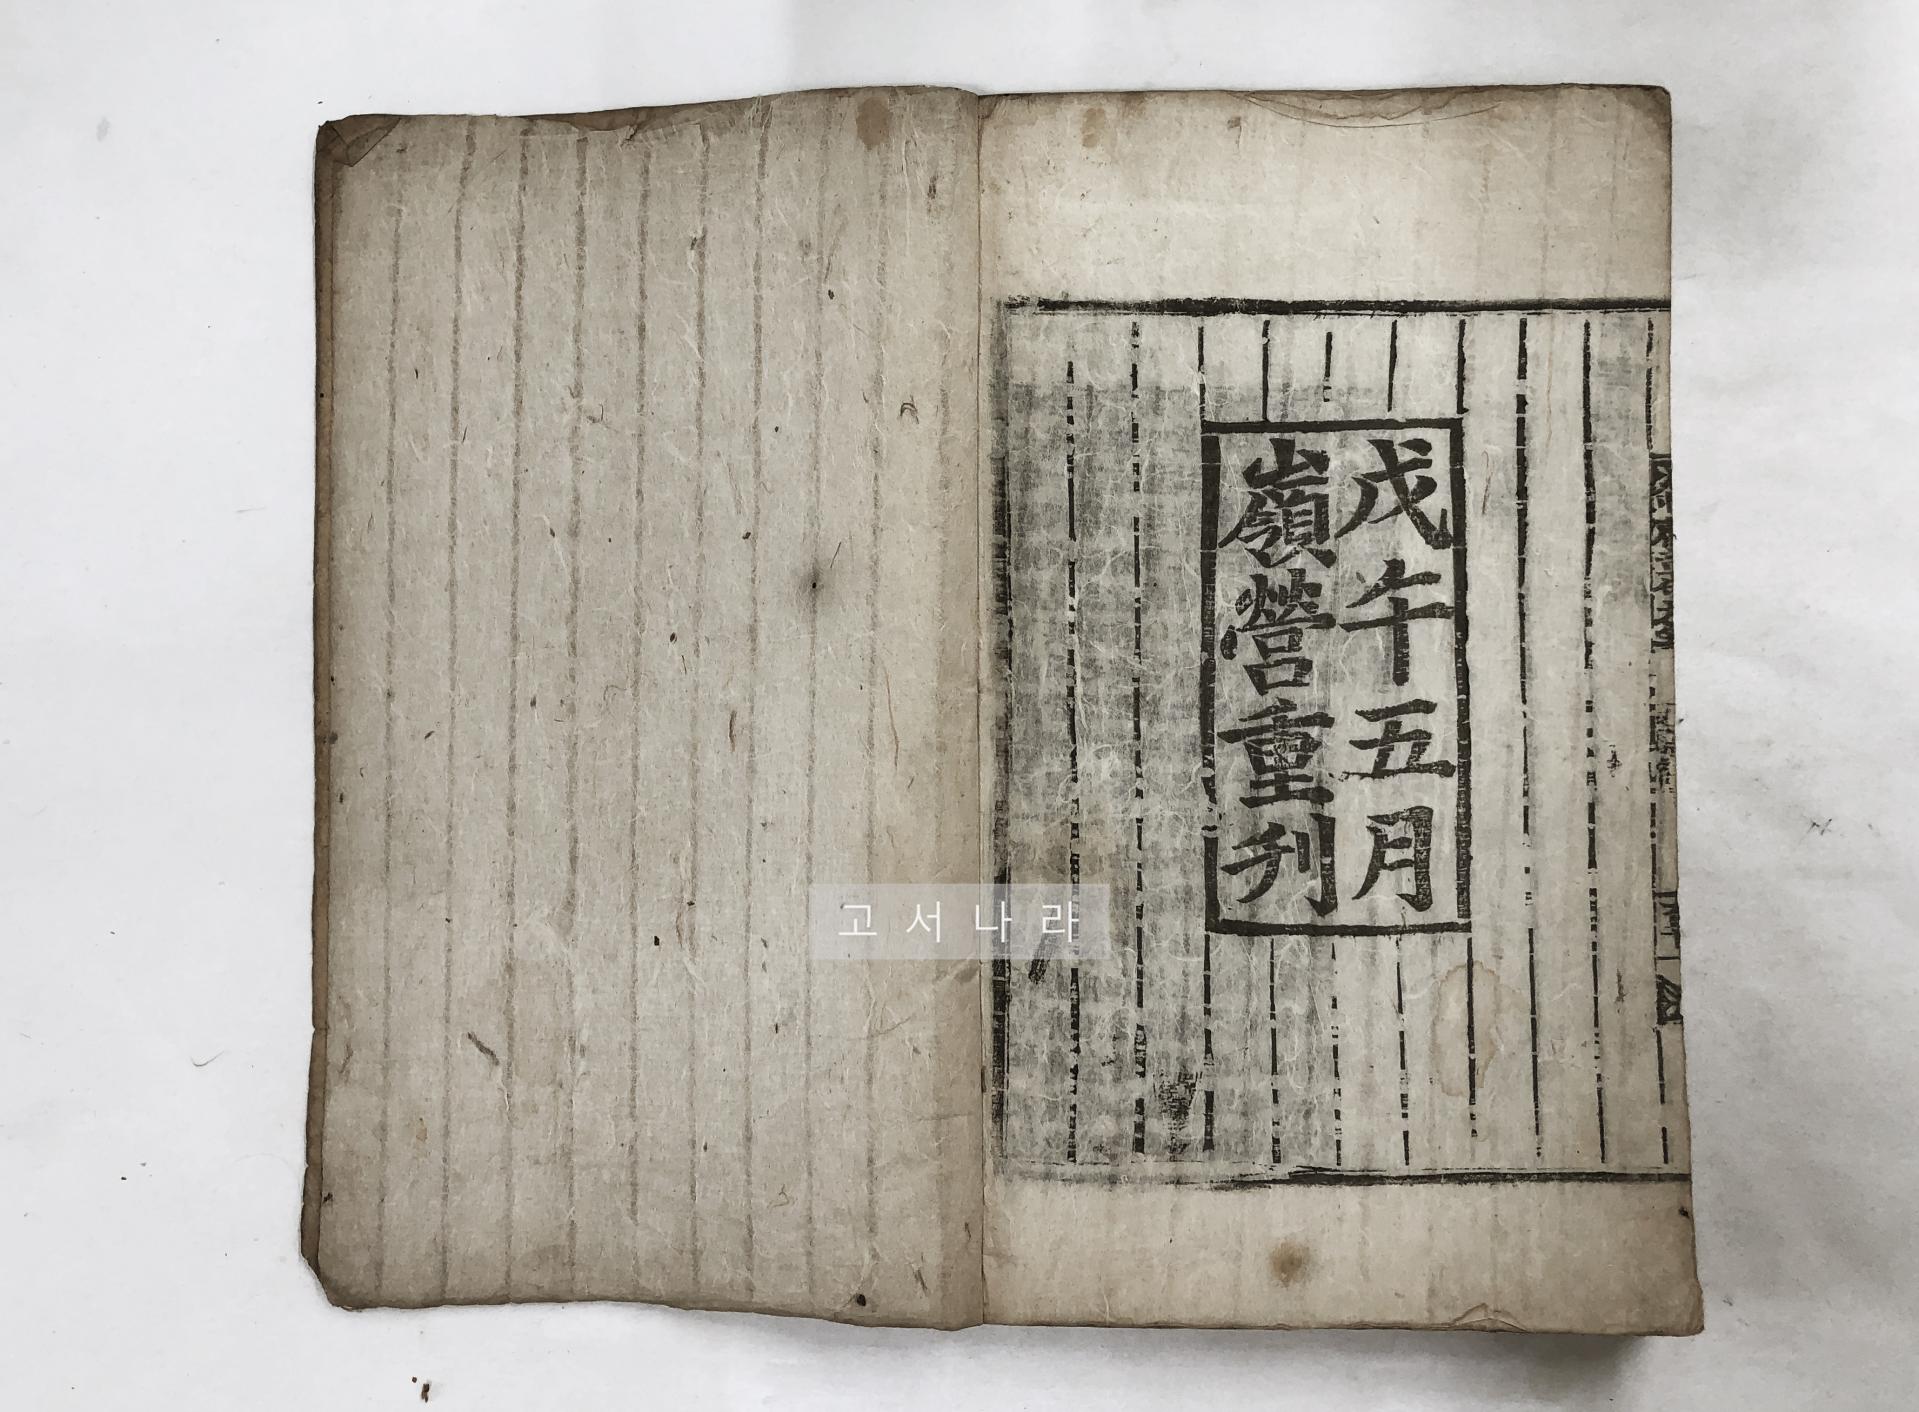 戊午五月
嶺營重刋
고서나라